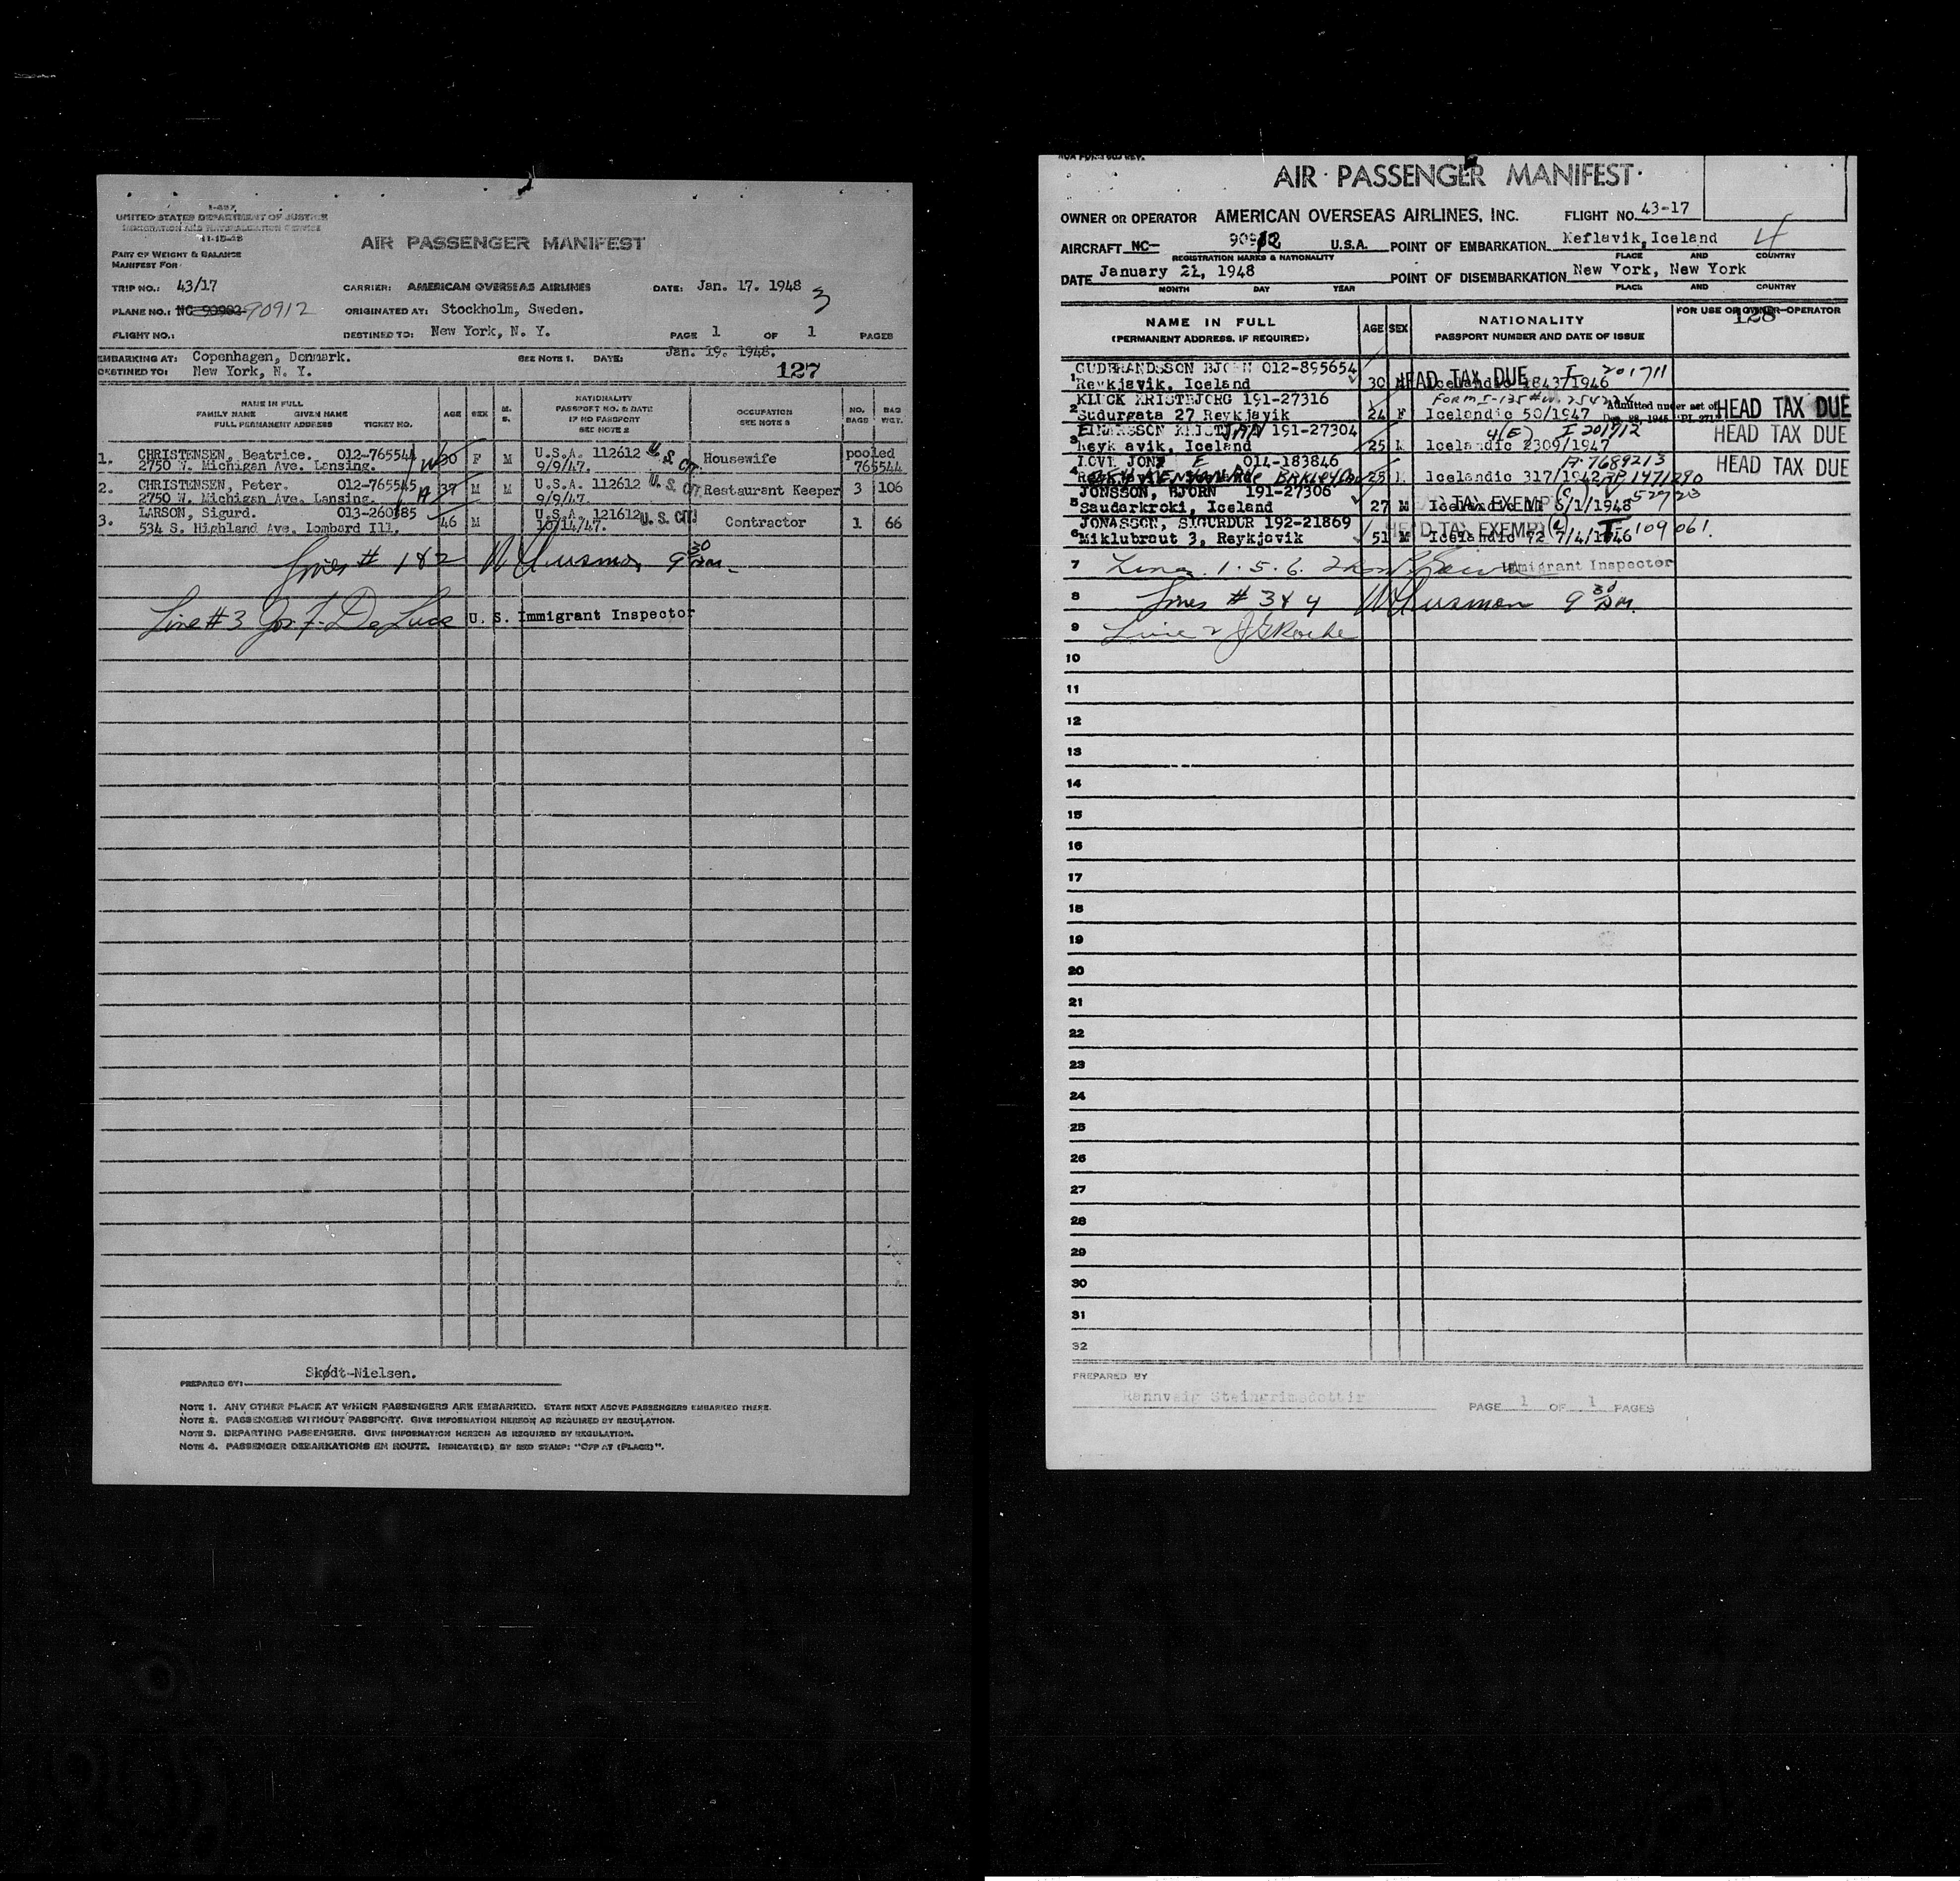 UNITED STATES DEPARTMENT OF JUSTICE
IMMIGRATION AND NATURALIZATION SERVICE
11-15-45
AIR PASSENGER MANIFEST
PART OF WEIGHT & BALANCE
MANIFEST FOR
TRIP NO.: 43/17 CARRIER: AMERICAN OVERSEAS AIRLINES DATE: Jan. 17. 1948 3
PLANE NO.: NC 90902 90912 ORIGINATED AT: Stockholm, Sweden.
FLIGHT NO.: DESTINED TO: New York, N. Y. PAGE 1 OF 1 PAGES
EMBARKING AT: Copenhagen, Denmark. SEE NOTE 1. DATE: Jan. 19. 1948.
DESTINED TO: New York, N. Y. 127
NAME IN FULL
FAMILY NAME GIVEN NAME
FULL PERMANENT ADDRESS TICKET NO.
AGE SEX M. S.
NATIONALITY
PASSPORT NO. & DATE
IF NO PASSPORT
SEE NOTE 2
OCCUPATION
SEE NOTE 3
NO. BAGS
BAG WGT.
1. CHRISTENSEN, Beatrice. 012-765544 W 30 F M U.S.A. 112612 U. S. CIT. Housewife pooled
2750 W. Michigan Ave. Lansing. 9/9/47. 765544
2. CHRISTENSEN, Peter. 012-765545 H 37 M M U.S.A. 112612 U. S. CIT. Restaurant Keeper 3 106
2750 W. Michigan Ave. Lansing. 9/9/47.
3. LARSON, Sigurd. 013-260185 46 M U.S.A. 121612 U. S. CIT. Contractor 1 66
534 S. Highland Ave. Lombard Ill. 10/14/47.
Lines # 1 & 2 9 30
Line #3 Jos. F. DeLuca U. S. Immigrant Inspector
PREPARED BY: Skødt-Nielsen.
NOTE 1. ANY OTHER PLACE AT WHICH PASSENGERS ARE EMBARKED. STATE NEXT ABOVE PASSENGERS EMBARKED THERE.
NOTE 2. PASSENGERS WITHOUT PASSPORT. GIVE INFORMATION HEREON AS REQUIRED BY REGULATION.
NOTE 3. DEPARTING PASSENGERS. GIVE INFORMATION HEREON AS REQUIRED BY REGULATION.
NOTE 4. PASSENGER DEBARKATIONS EN ROUTE. INDICATE(D) BY RED STAMP: "OFF AT (PLACE)".
AIR · PASSENGER MANIFEST·
OWNER OR OPERATOR AMERICAN OVERSEAS AIRLINES, INC. FLIGHT NO. 43-17
AIRCRAFT NC- 90912 U.S.A. POINT OF EMBARKATION Keflavik, Iceland 4
REGISTRATION MARKS & NATIONALITY PLACE AND COUNTRY
DATE January 21, 1948 POINT OF DISEMBARKATION New York, New York
MONTH DAY YEAR PLACE AND COUNTRY
NAME IN FULL
(PERMANENT ADDRESS, IF REQUIRED)
AGE SEX
NATIONALITY
PASSPORT NUMBER AND DATE OF ISSUE
FOR USE OF OWNER-OPERATOR
128
1 GUDBRANDSSON BJORN 012-895654 I 201711
Reykjavik, Iceland 30 M Icelandic 1843/1946 HEAD TAX DUE
2 KLUCK KRISTBJORG 191-27316 FORM I-135
Sudurgata 27 Reykjavik 24 F Icelandic 50/1947 Admitted under act of HEAD TAX DUE
3 EINARSSON KRISTJAN 191-27304 4(E) I 201712 HEAD TAX DUE
Reykjavik, Iceland 25 M Icelandic 2309/1947
4 014-183846 A-7689213 HEAD TAX DUE
25 M Icelandic 317/1942 1471290
5 JONSSON, BJORN 191-27306 HEAD TAX EXEMPT
Saudarkroki, Iceland 27 M 8/1/1948
6 JONASSON, SIGURDUR 192-21869 HEAD TAX EXEMPT I-109061.
Miklubraut 3, Reykjavik 51 M Icelandic 72 7/4/1946
7 Lines 1. 5. 6. Immigrant Inspector
8 Lines # 3 & 4 9 30
9 Line 2
10
11
12
13
14
15
16
17
18
19
20
21
22
23
24
25
26
27
28
29
30
31
32
PREPARED BY
Rannveig Steingrimsdottir PAGE 1 OF 1 PAGES